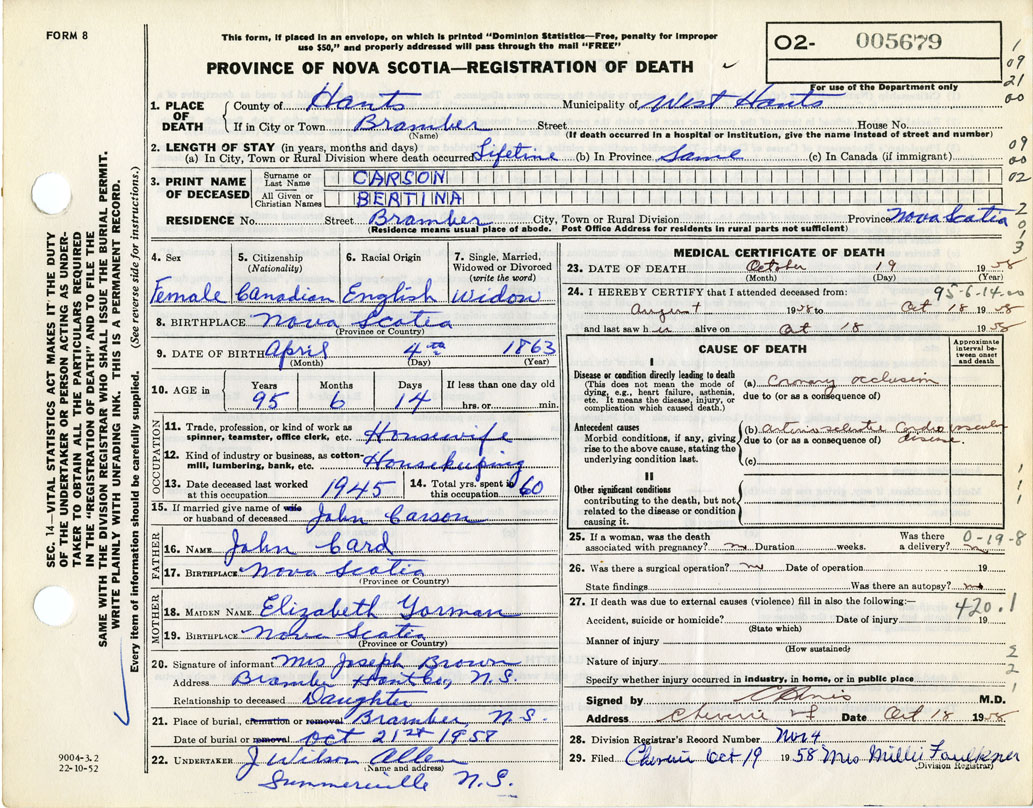 FORM 8
This form, if placed in an envelope, on which is printed "Dominion Statistics—Free, penalty for improper
use $50," and properly addressed will pass through the mail "FREE"
PROVINCE OF NOVA SCOTIA—REGISTRATION OF DEATH
02- 005679
For use of the Department only
1
09
21
00
1. PLACE OF DEATH
County of Hants Municipality of West Hants
If in City or Town Bramber Street House No.
(Name) (If death occurred in a hospital or institution, give the name instead of street and number)
2. LENGTH OF STAY (in years, months and days)
(a) In City, Town or Rural Division where death occurred Lifetime (b) In Province Same (c) In Canada (if immigrant)
09
00
02
3. PRINT NAME OF DECEASED
Surname or Last Name CARSON
All Given or Christian Names BERTINA
RESIDENCE No. Street Bramber City, Town or Rural Division Province Nova Scotia
(Residence means usual place of abode. Post Office Address for residents in rural parts not sufficient)
2
0
1
3
SEC. 14—VITAL STATISTICS ACT MAKES IT THE DUTY
OF THE UNDERTAKER OR PERSON ACTING AS UNDER-
TAKER TO OBTAIN ALL THE PARTICULARS REQUIRED
IN THE "REGISTRATION OF DEATH" AND TO FILE THE
SAME WITH THE DIVISION REGISTRAR WHO SHALL ISSUE THE BURIAL PERMIT.
WRITE PLAINLY WITH UNFADING INK. THIS IS A PERMANENT RECORD.
Every item of information should be carefully supplied. (See reverse side for instructions.)
4. Sex 5. Citizenship (Nationality) 6. Racial Origin 7. Single, Married, Widowed or Divorced (write the word)
Female Canadian English Widow
8. BIRTHPLACE Nova Scotia
(Province or Country)
9. DATE OF BIRTH April 4th 1863
(Month) (Day) (Year)
10. AGE in Years Months Days If less than one day old
95 6 14 hrs. or min.
OCCUPATION
11. Trade, profession, or kind of work as
spinner, teamster, office clerk, etc. Housewife
12. Kind of industry or business, as cotton-
mill, lumbering, bank, etc. Housekeeping
13. Date deceased last worked at this occupation 1945 14. Total yrs. spent in this occupation 60
15. If married give name of wife
or husband of deceased John Carson
FATHER
16. NAME John Card
17. BIRTHPLACE Nova Scotia
(Province or Country)
MOTHER
18. MAIDEN NAME Elizabeth Yorman
19. BIRTHPLACE Nova Scotia
(Province or Country)
20. Signature of informant Mrs Joseph Brown
Address Bramber Hants Co, N.S.
Relationship to deceased Daughter
21. Place of burial, cremation or removal Bramber, N.S.
Date of burial or removal Oct 21st 1958
22. UNDERTAKER J Wilson Allen
(Name and address)
Summerville N.S.
9004-3.2
22-10-52
MEDICAL CERTIFICATE OF DEATH
23. DATE OF DEATH October 19 1958
(Month) (Day) (Year)
95-6-14-00
24. I HEREBY CERTIFY that I attended deceased from:
August 1958 to Oct 18 1958
and last saw h er alive on Oct 18 1958
CAUSE OF DEATH
Approximate interval be- tween onset and death
I
Disease or condition directly leading to death
(This does not mean the mode of
dying, e.g., heart failure, asthenia,
etc. It means the disease, injury, or
complication which caused death.)
(a) Coronary occlusion
due to (or as a consequence of)
Antecedent causes
Morbid conditions, if any, giving
rise to the above cause, stating the
underlying condition last.
(b) arteriosclerotic cardiovascular disease.
due to (or as a consequence of)
(c)
II
Other significant conditions
contributing to the death, but not
related to the disease or condition
causing it.
1
1
1
25. If a woman, was the death
associated with pregnancy? no Duration weeks. Was there a delivery? no
0-19-8
26. Was there a surgical operation? no Date of operation 19
State findings Was there an autopsy? no
27. If death was due to external causes (violence) fill in also the following:—
420.1
Accident, suicide or homicide? Date of injury 19
(State which)
Manner of injury
(How sustained)
Nature of injury
Specify whether injury occurred in industry, in home, or in public place
2
2
1
Signed by M.D.
Address Cheverie NS Date Oct 18 1958
28. Division Registrar's Record Number No 4
29. Filed Cheverie Oct 19 1958 Mrs Millie Faulkner
(Division Registrar)